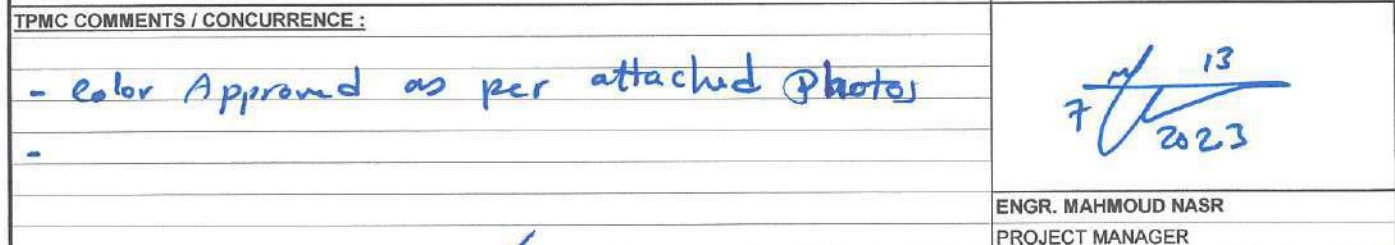 TPMC COMMENTS / CONCURRENCE :
- Color Approved as per attached Photos
-
13
7
2023
ENGR. MAHMOUD NASR
PROJECT MANAGER